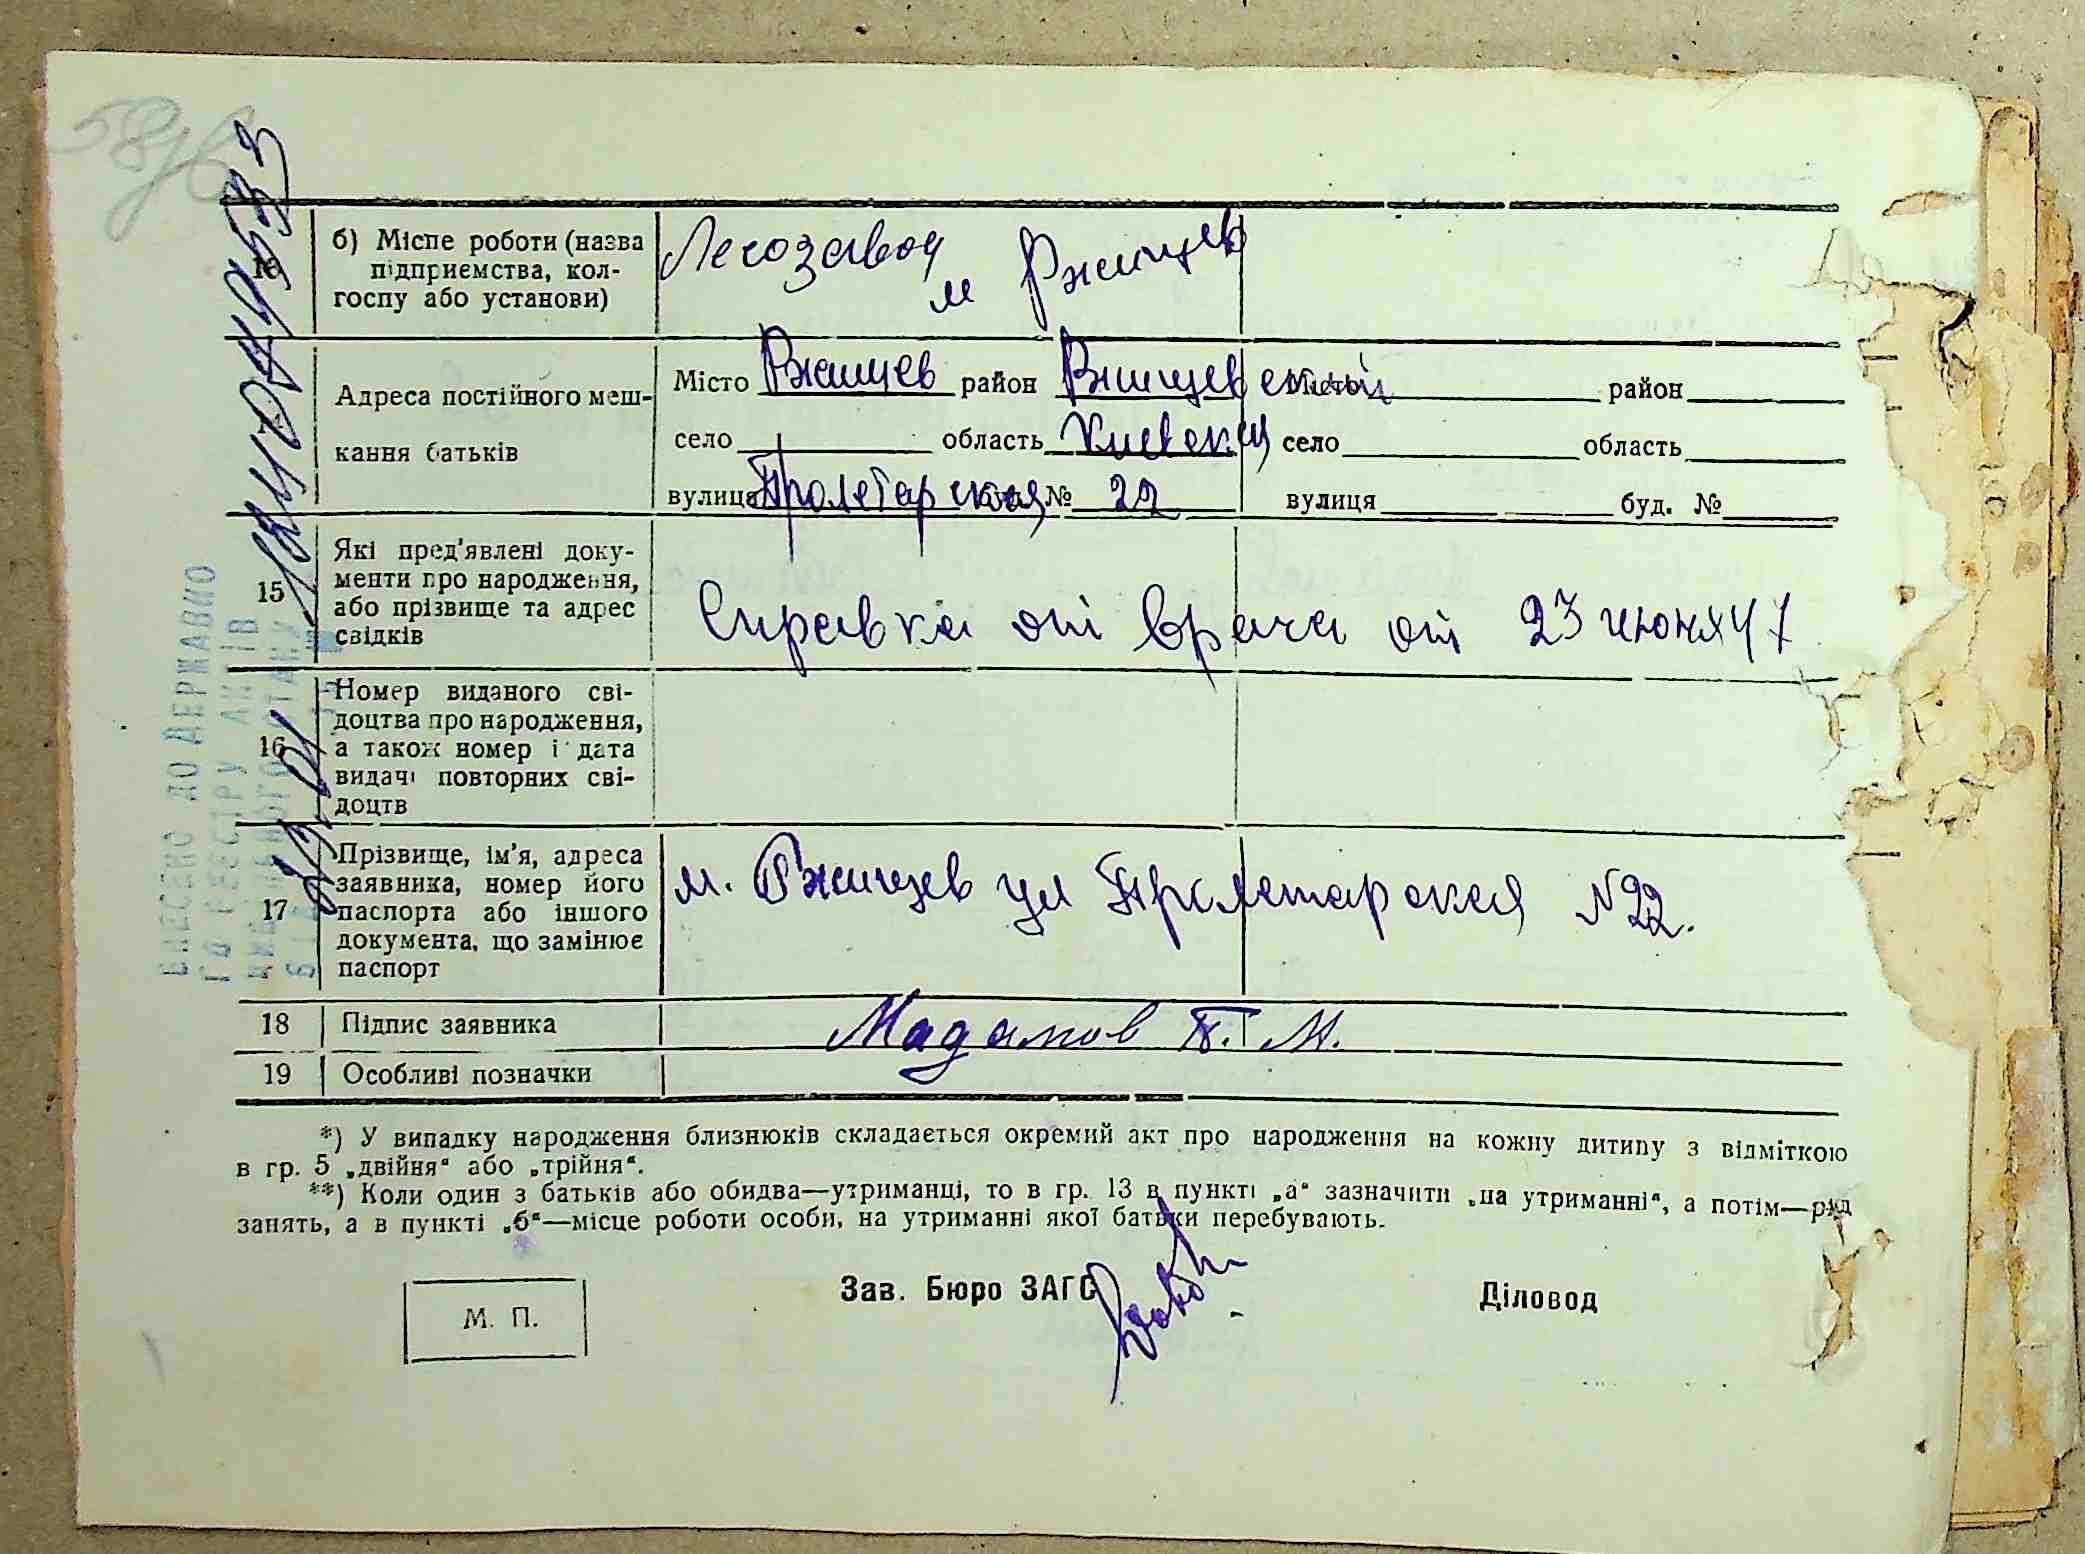 б) Місце роботи (назва
підприємства, кол-
госпу або установи)
Лесозавод
м Ржищев
Адреса постійного меш-
кання батьків
Місто Ржищев район Ржищевский
село область Киевск
вулиця Пролетарская буд. № 22
Місто район
село область
вулиця буд. №
15
Які пред'явлені доку-
менти про народження,
або прізвище та адрес
свідків
Справка от врача от 23 июня 47
16
Номер виданого сві-
доцтва про народження,
а також номер і дата
видачі повторних сві-
доцтв
17
Прізвище, ім'я, адреса
заявника, номер його
паспорта або іншого
документа, що замінює
паспорт
м. Ржищев ул Пролетарская N 22.
18 Підпис заявника
Мадамов Т. М.
19 Особливі позначки
*) У випадку народження близнюків складається окремий акт про народження на кожну дитину з відміткою
в гр. 5 „двійня“ або „трійня“.
**) Коли один з батьків або обидва—утриманці, то в гр. 13 в пункті „а“ зазначити „на утриманні“, а потім—рід
занять, а в пункті „б“—місце роботи особи, на утриманні якої батьки перебувають.
Зав. Бюро ЗАГС
Діловод
М. П.
ВНЕСЕНО ДО ДЕРЖАВНО
ГО РЕЄСТРУ АКТІВ
ЦИВІЛЬНОГО СТАНУ